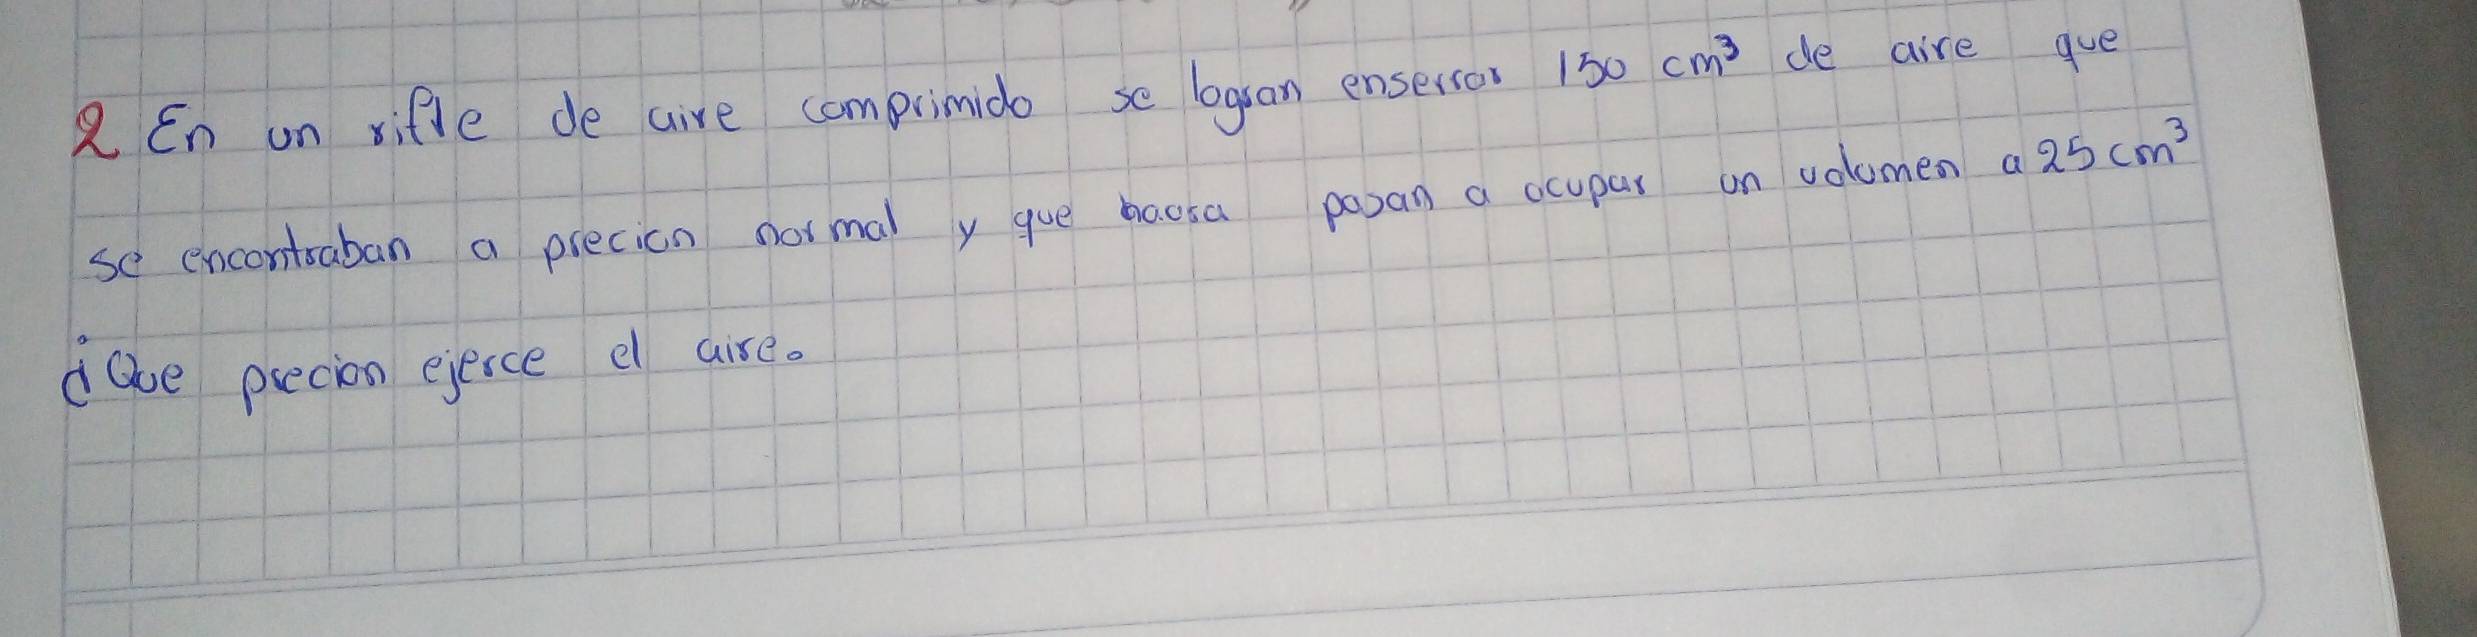 2 En un rifle de aire comprimido se logran enserrar 150 cm³ de aire que
se encontraban a precion normal y que haora pasan a ocupar un volumen a 25 cm³
¿Que precion ejerce el aire.